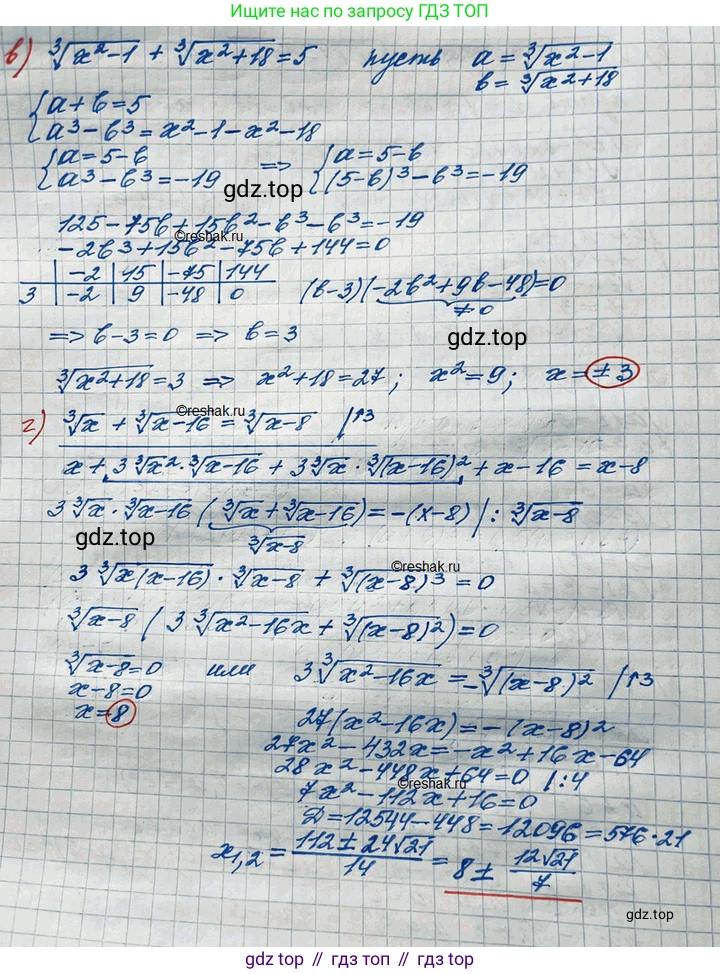 Ищите ответы по запросу ГДЗ ТОП
в) ∛(x²-1) + ∛(x²+18) = 5 пусть a = ∛(x²-1)
b = ∛(x²+18)
{ a+b=5
{ a³-b³=x²-1-x²-18
{ a=5-b => { a=5-b
{ a³-b³=-19 { (5-b)³-b³=-19
gdz.top
125-75b+15b²-b³-b³=-19
©reshak.ru
-2b³+15b²-75b+144=0
| -2 | 15 | -75 | 144
3 | -2 | 9 | -48 | 0 (b-3)(-2b²+9b-48)=0
≠0
=> b-3=0 => b=3
gdz.top
∛(x²+18)=3 => x²+18=27; x²=9; x=±3
©reshak.ru
г) ∛x + ∛(x-16) = ∛(x-8) |↑3
x+3∛x²·∛(x-16)+3∛x·∛(x-16)²+x-16=x-8
3∛x·∛(x-16)(∛x+∛(x-16))=-(x-8) |:∛(x-8)
gdz.top
∛(x-8)
©reshak.ru
3∛(x(x-16))·∛(x-8)+∛(x-8)³=0
∛(x-8)(3∛(x²-16x)+∛(x-8)²)=0
∛(x-8)=0 или 3∛(x²-16x)=-∛(x-8)² |↑3
x-8=0
x=8
27(x²-16x)=-(x-8)²
27x²-432x=-x²+16x-64
28x²-448x+64=0 |:4
©reshak.ru
7x²-112x+16=0
D=12544-448=12096=576·21
x₁,₂=(112±24√21)/14=8±(12√21)/7
gdz.top
gdz.top // гдз.топ // gdz.top // гдз.топ